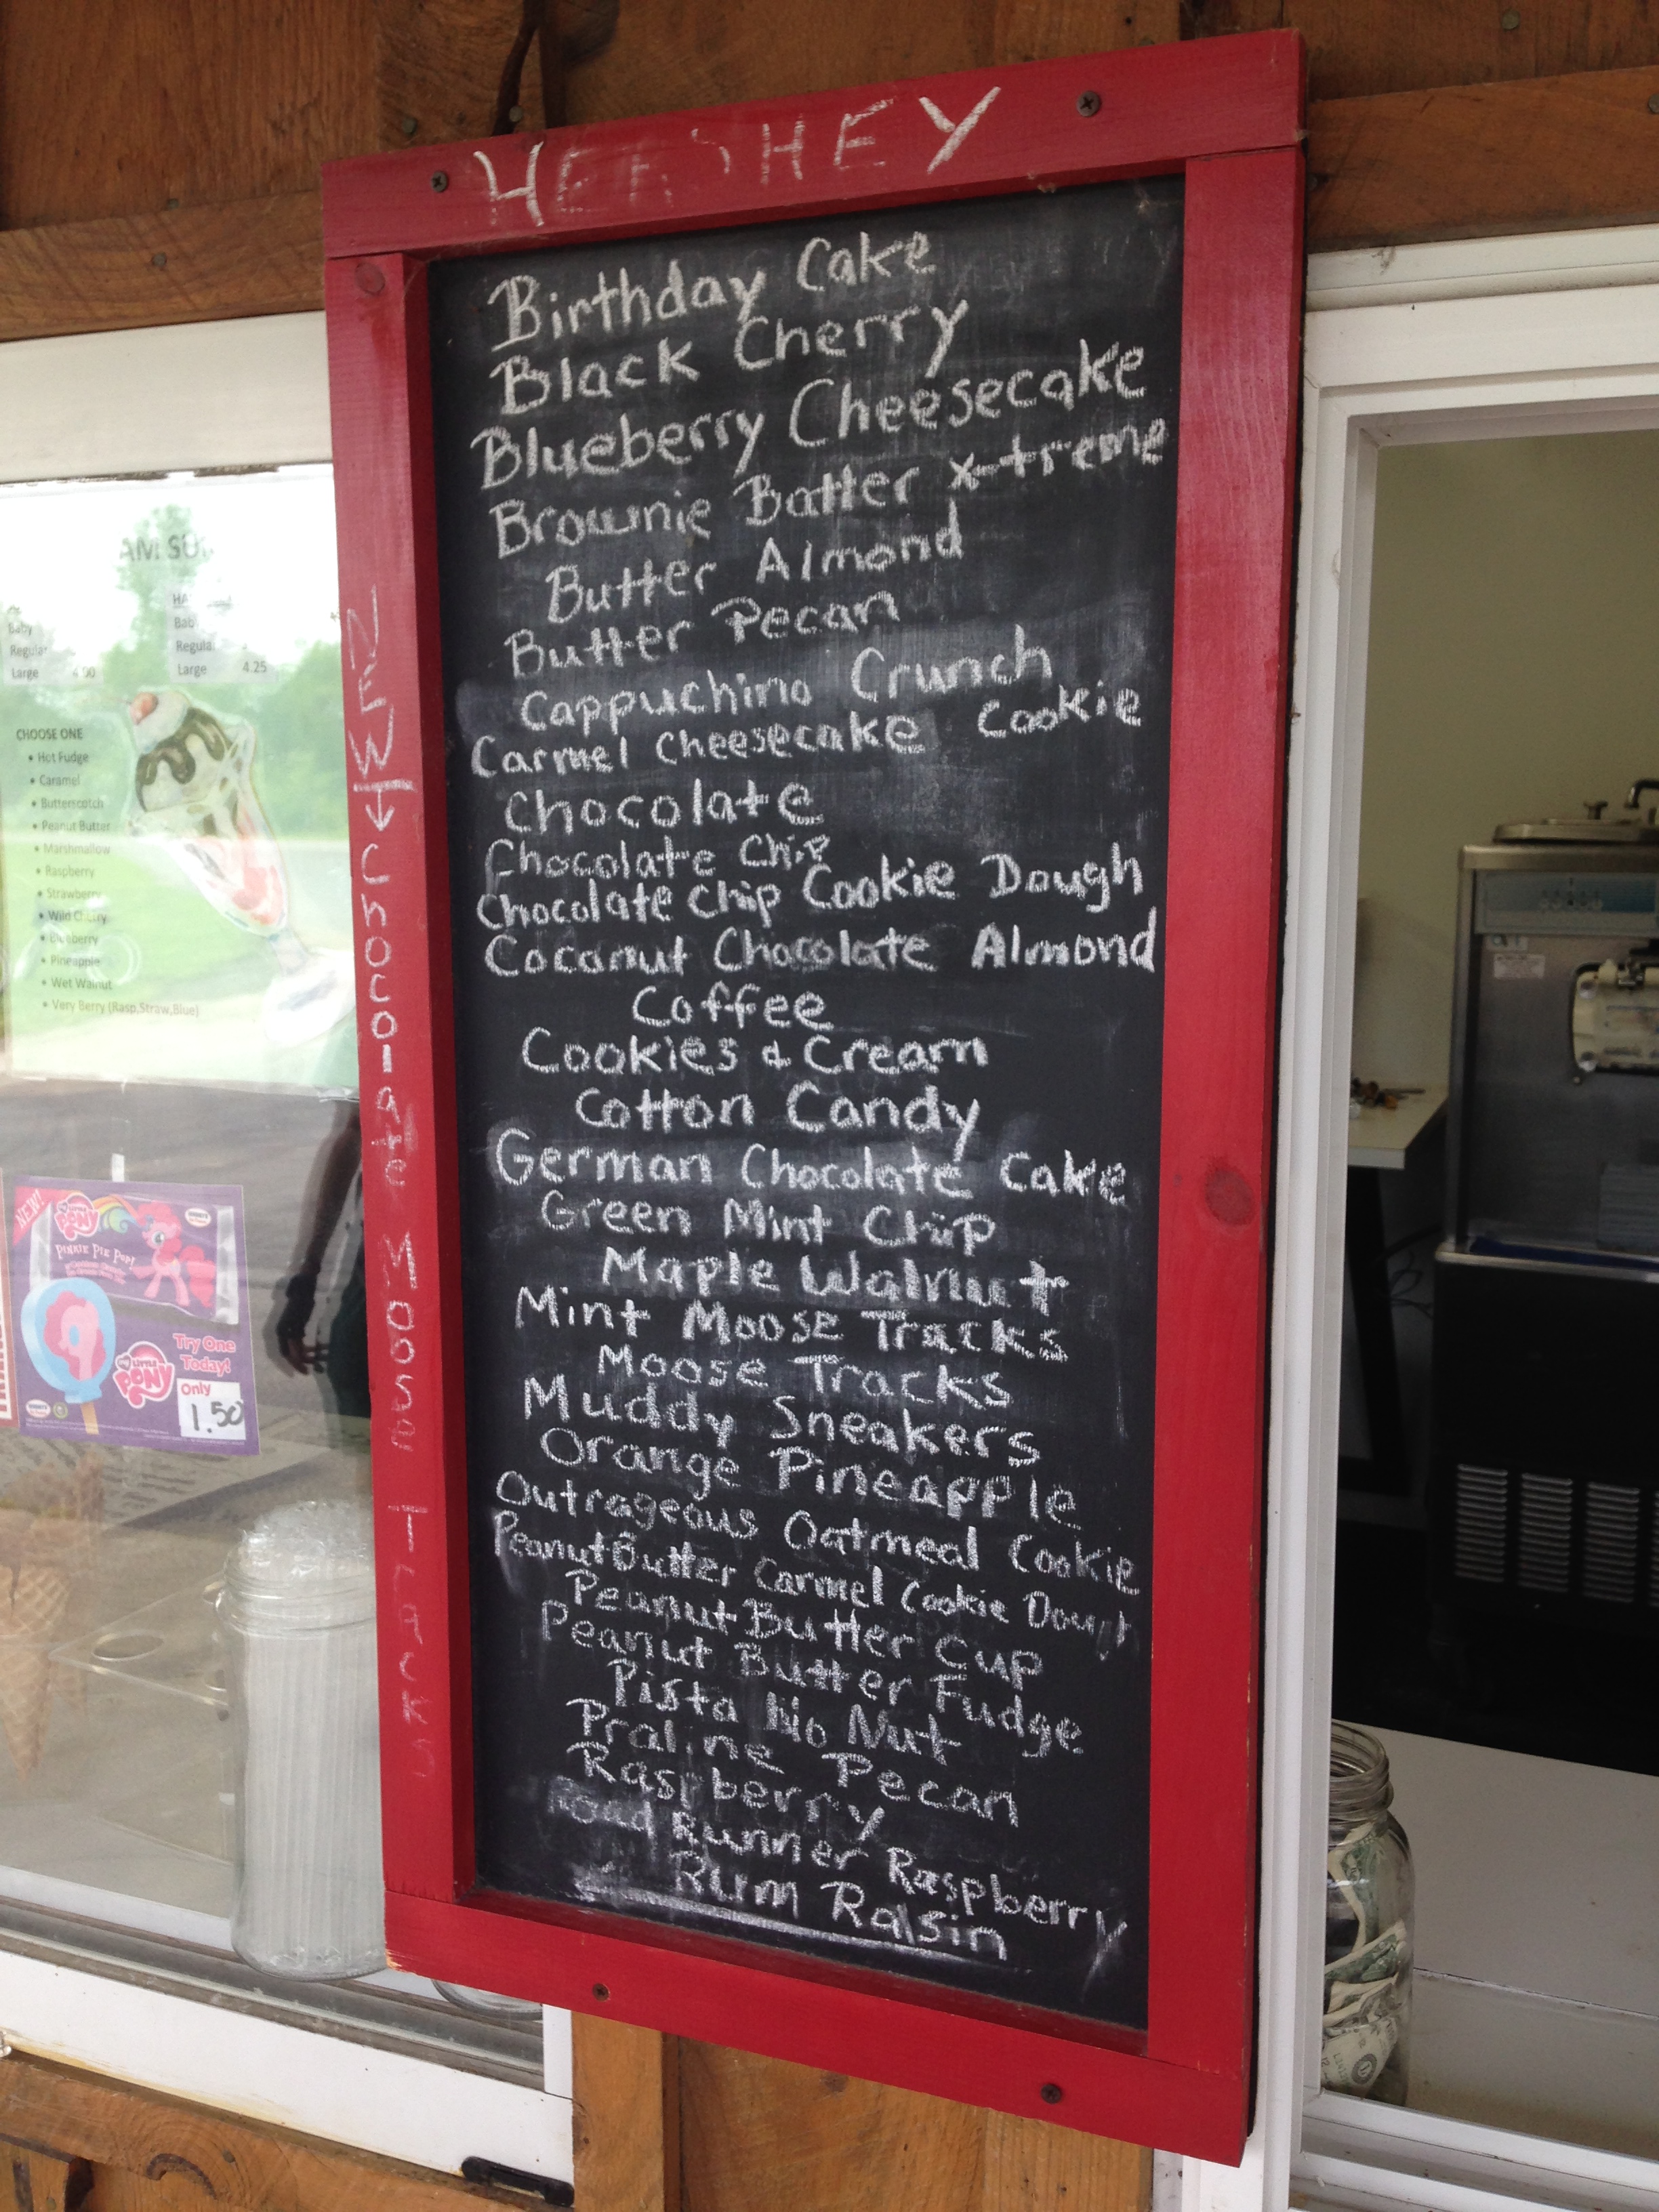 HERSHEY
Birthday Cake
Black Cherry
Blueberry Cheesecake
Brownie Batter x-treme
Butter Almond
Butter Pecan
Cappuchino Crunch
Carmel Cheesecake Cookie
Chocolate
Chocolate Chip
Chocolate Chip Cookie Dough
Coconut Chocolate Almond
Coffee
Cookies & Cream
Cotton Candy
German Chocolate Cake
Green Mint Chip
Maple Walnut
Mint Moose Tracks
Moose Tracks
Muddy Sneakers
Orange Pineapple
Outrageous Oatmeal Cookie
Peanut Butter Carmel Cookie
Peanut Butter Cup
Peanut Butter Fudge
Pistachio Nut
Praline Pecan
Raspberry
Road Runner Raspberry
Rum Raisin
NEW
Chocolate Moose Tracks
Baby
Regular
Large 4.00
Baby
Regular
Large 4.25
CHOOSE ONE
• Hot Fudge
• Caramel
• Butterscotch
• Peanut Butter
• Marshmallow
• Raspberry
• Strawberry
• Wild Cherry
• Blueberry
• Pineapple
• Wet Walnut
• Very Berry (Rasp,Straw,Blue)
NEW!
My Little PONY
PINKIE PIE POP!
Try One
Today!
My Little PONY
Only
1.50